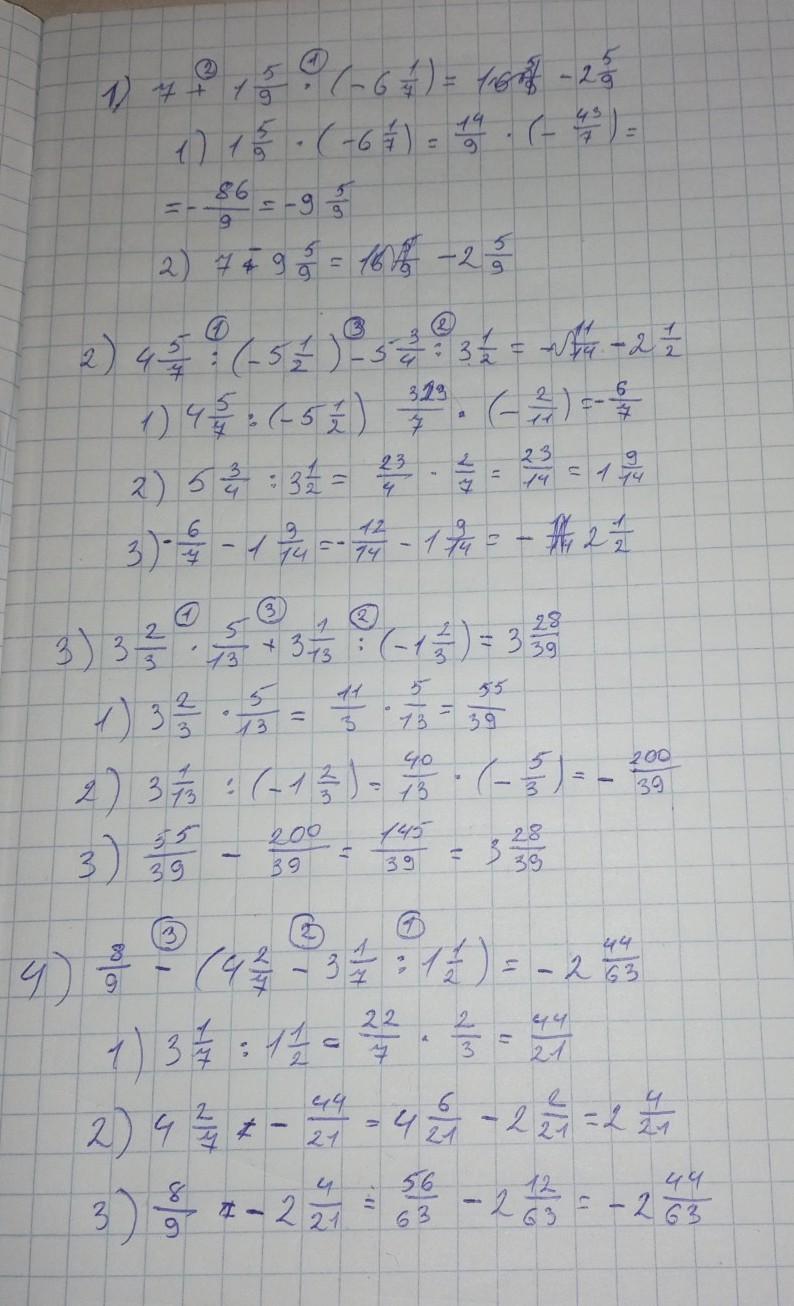 1) 7 + 1 5/9 · (-6 1/7) = - 2 5/9
1) 1 5/9 · (-6 1/7) = 14/9 · (- 43/7) =
= - 86/9 = -9 5/9
2) 7 - 9 5/9 = - 2 5/9
2) 4 5/7 : (-5 1/2) - 5 3/4 : 3 1/2 = - 2 1/2
1) 4 5/7 : (-5 1/2) 33/7 · (- 2/11) = - 6/7
2) 5 3/4 : 3 1/2 = 23/4 · 2/7 = 23/14 = 1 9/14
3) - 6/7 - 1 9/14 = - 12/14 - 1 9/14 = - 2 1/2
3) 3 2/3 · 5/13 + 3 1/13 : (-1 2/3) = 3 28/39
1) 3 2/3 · 5/13 = 11/3 · 5/13 = 55/39
2) 3 1/13 : (-1 2/3) = 40/13 · (- 5/3) = - 200/39
3) 55/39 - 200/39 = 145/39 = 3 28/39
4) 8/9 - (4 2/7 - 3 1/7 : 1 1/2) = - 2 44/63
1) 3 1/7 : 1 1/2 = 22/7 · 2/3 = 44/21
2) 4 2/7 - 44/21 = 4 6/21 - 2 2/21 = 2 4/21
3) 8/9 - 2 4/21 = 56/63 - 2 12/63 = - 2 44/63